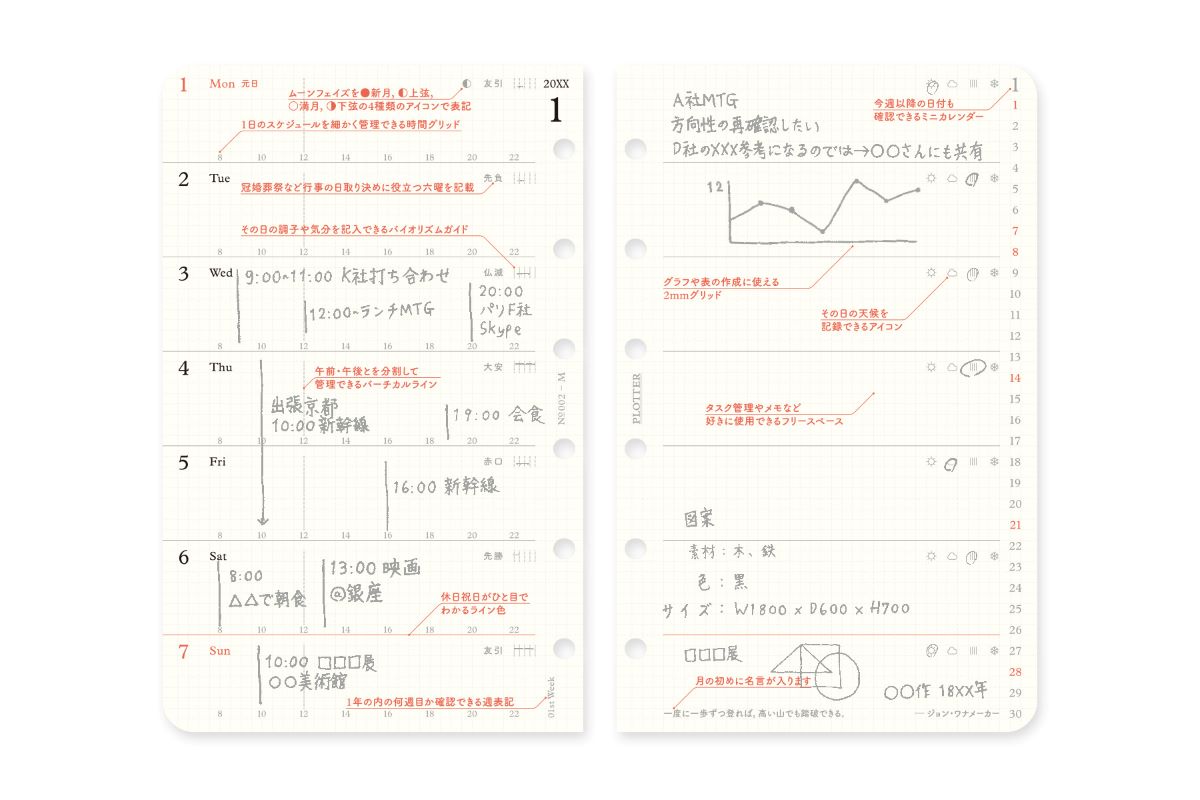 1 Mon 元日 友引 20XX
1
ムーンフェイズを●新月, ◐上弦,
○満月, ◑下弦の4種類のアイコンで表記
1日のスケジュールを細かく管理できる時間グリッド
8 10 12 14 16 18 20 22
2 Tue 先負
冠婚葬祭など行事の日取り決めに役立つ六曜を記載
その日の調子や気分を記入できるバイオリズムガイド
8 10 12 14 16 18 20 22
3 Wed 仏滅
9:00~11:00 K社打ち合わせ
12:00~ランチMTG
20:00
パリF社
Skype
8 10 12 14 16 18 20 22
4 Thu 大安
午前・午後とを分割して
管理できるバーチカルライン
出張京都
10:00 新幹線
19:00 会食
8 10 12 14 16 18 20 22
5 Fri 赤口
16:00 新幹線
8 10 12 14 16 18 20 22
6 Sat 先勝
8:00
△△で朝食
13:00 映画
@銀座
休日祝日がひと目で
わかるライン色
8 10 12 14 16 18 20 22
7 Sun 友引
10:00 □□□展
○○美術館
1年の内の何週目か確認できる週表記
8 10 12 14 16 18 20 22
№002 – M
01st Week
A社MTG
方向性の再確認したい
D社のXXX参考になるのでは→○○さんにも共有
今週以降の日付も
確認できるミニカレンダー
12
グラフや表の作成に使える
2mmグリッド
その日の天候を
記録できるアイコン
PLOTTER
タスク管理やメモなど
好きに使用できるフリースペース
図案
素材：木、鉄
色：黒
サイズ：W1800 x D600 x H700
□□□展
月の初めに名言が入ります
○○作 18XX年
一度に一歩ずつ登れば, 高い山でも踏破できる.
— ジョン・ワナメーカー
1
1
2
3
4
5
6
7
8
9
10
11
12
13
14
15
16
17
18
19
20
21
22
23
24
25
26
27
28
29
30